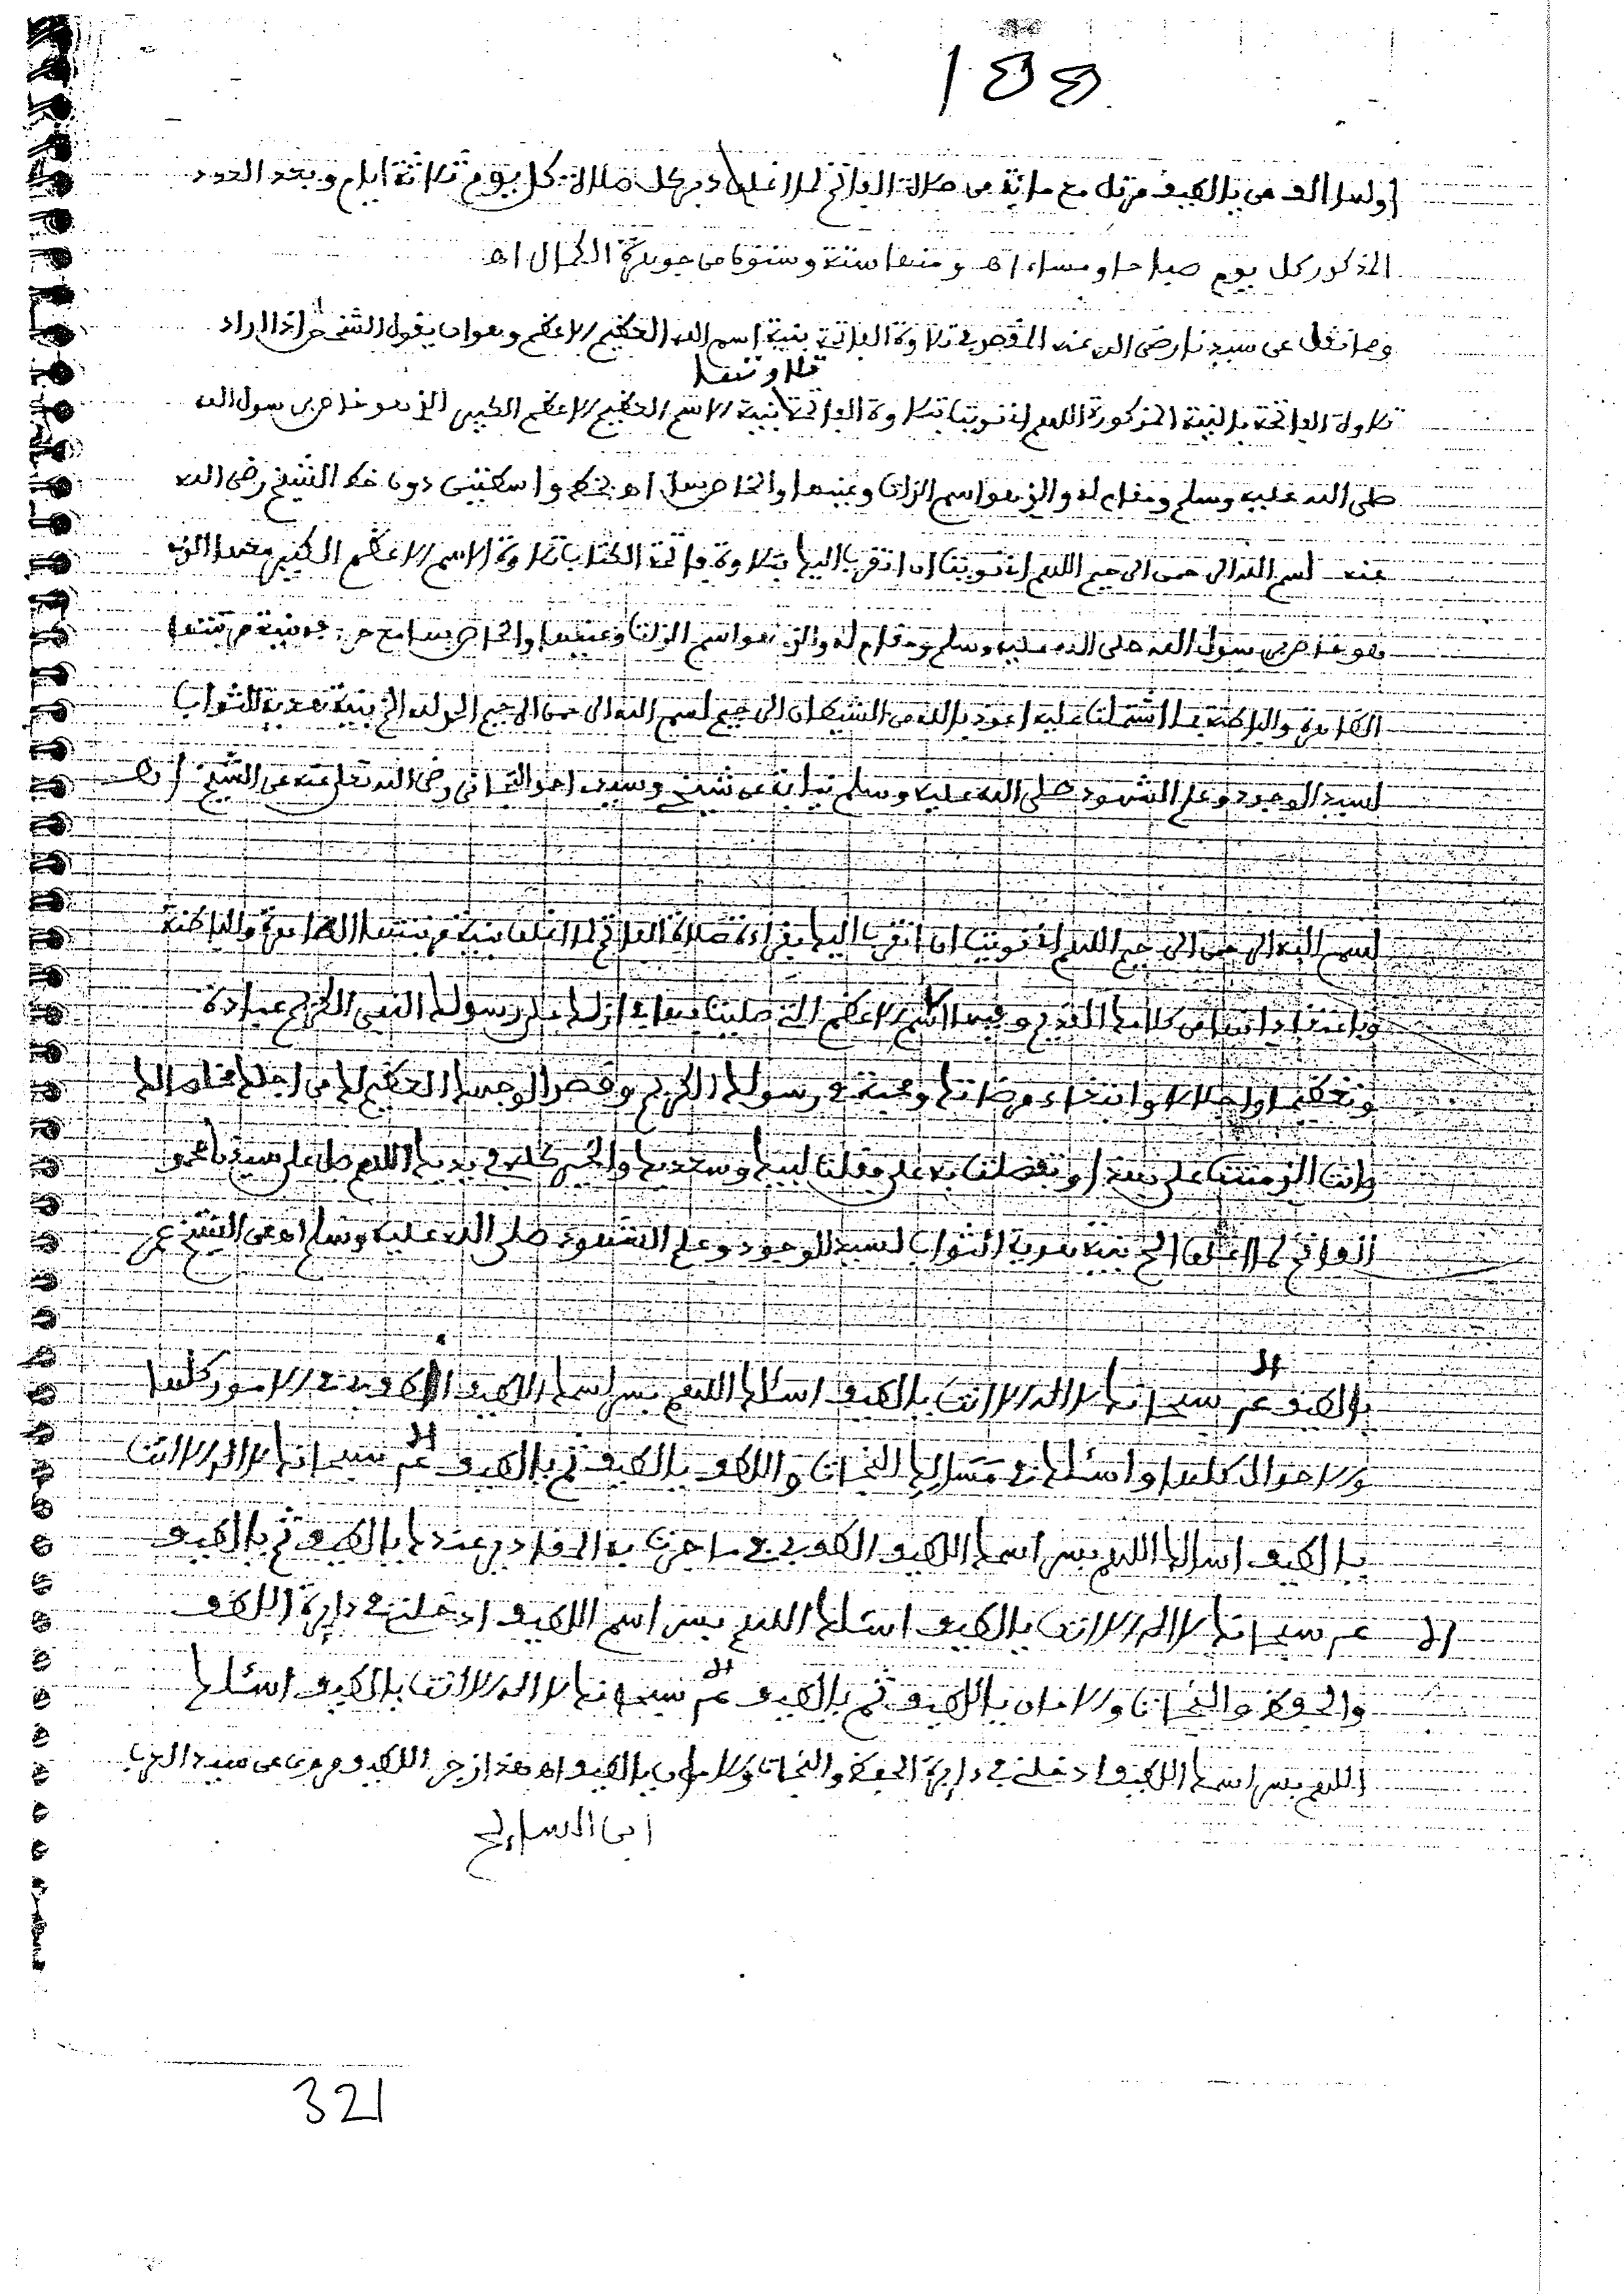 ١٤٤
اولها الف من يا لطيف مرتل مع مائة من صلاة الفاتح لما اغلق دبر كل صلاة كل يوم ثلاثة ايام وبعد العدد
المذكور كل يوم صباحا ومساء اه ومنها ستة وستون من جوهرة الكمال اه
ومما نقل عن سيدنا رضي الله عنه المقصور في تلاوة الفاتحة بنية اسم الله العظيم الاعظم وهو ان يقول الشخص اذا اراد
تلاوتها
تلاوة الفاتحة بالنية المذكورة اللهم اني نويت بتلاوة الفاتحة بنية الاسم العظيم الاعظم الكبير الذي هو خاص برسول الله
صلى الله عليه وسلم ومقام له والذي هو اسم الذات وعينها والخاص بها اه بخطه واسكنتني دون خط الشيخ رضي الله
عنه بسم الله الرحمن الرحيم اللهم اني نويت ان اتقرب اليك بتلاوة فاتحة الكتاب تلاوة الاسم الاعظم الكبير معها الذي
هو خاص برسول الله صلى الله عليه وسلم ومقام له والذي هو اسم الذات وعينها والخاص بها مع نية مرتبتها
الظاهرة والباطنة وما اشتملت عليه اعوذ بالله من الشيطان الرجيم بسم الله الرحمن الرحيم الحمد لله الخ بنية هدية الثواب
لسيد الوجود وعلم الشهود صلى الله عليه وسلم نيابة عن شيخي وسيدي احمد التجاني رضي الله تعلى عنه عن الشيخ اه
بسم الله الرحمن الرحيم اللهم اني نويت ان اتقرب اليك بقراءة صلاة الفاتح لما اغلق بنية مرتبتها الظاهرة والباطنة
وباعتقاد انها من كلامك القديم وفيها الاسم الاعظم التي صليت بها في ازلك على رسولك النبي الكريم عبادة
وتعظيما واجلالا وابتغاء مرضاتك ومحبة في رسولك الكريم وقصدا لوجهك العظيم لك من اجلك مخلصا لك
وانت الذي مننت علي بهذا وتفضلت به علي وقلت لبيك وسعديك والخير كله في يديك اللهم صل على سيدنا محمد
الفاتح لما اغلق الخ بنية هدية الثواب لسيد الوجود وعلم الشهود صلى الله عليه وسلم اه عن الشيخ عمر
يا لطيف عم سبحانك لا اله الا انت يا لطيف اسئلك اللهم بسر اسمك اللطيف الطف بي في الامور كلها
والاحوال كلها واسئلك النجات واللطف يا لطيف ثم يا لطيف عم سبحانك لا اله الا انت
يا لطيف اسالك اللهم بسر اسمك اللطيف الطف بي في ما جرت به المقادير عندك يا لطيف ثم يا لطيف
عم سبحانك لا اله الا انت يا لطيف اسئلك اللهم بسر اسم اللطيف ادخلني في دايرة اللطف
والحفظ والنجات والامان يا لطيف ثم يا لطيف عم سبحانك لا اله الا انت يا لطيف اسئلك
اللهم بسر اسمك اللطيف ادخلني في دايرة الحفظ والنجات والامان يا لطيف اه هذا زجر اللطيف مروي عن سيد العربي
ابن السايح
321